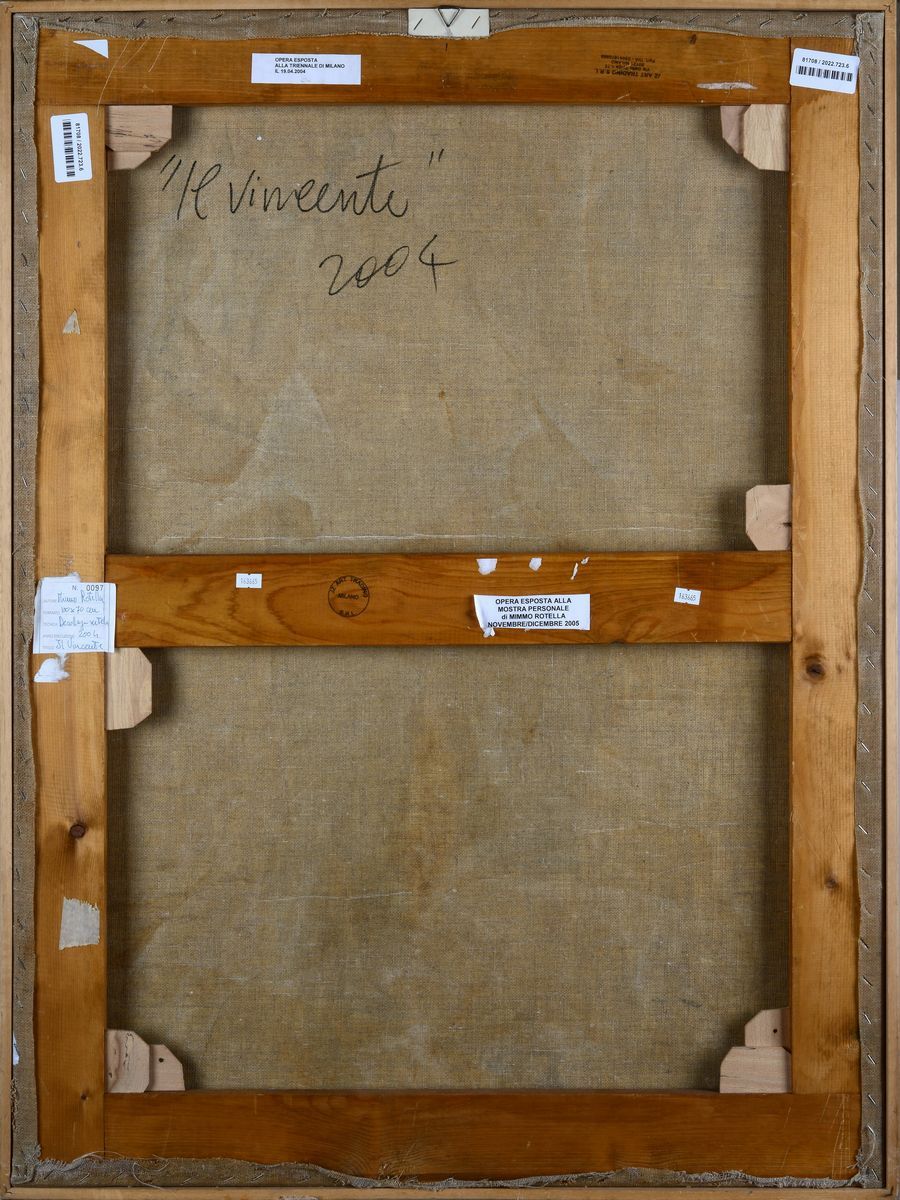 OPERA ESPOSTA
ALLA TRIENNALE DI MILANO
IL 19.04.2004
JZ ART TRADING S.R.L.
20121 MILANO
81708 / 2022.723.6
81708 / 2022.723.6
"Il Vincente"
2004
N. 0097
Mimmo Rotella
100x70 cm
2004
Il Vincente
163665
JZ ART TRADING
MILANO
S.R.L.
OPERA ESPOSTA ALLA
MOSTRA PERSONALE
di MIMMO ROTELLA
NOVEMBRE/DICEMBRE 2005
163665